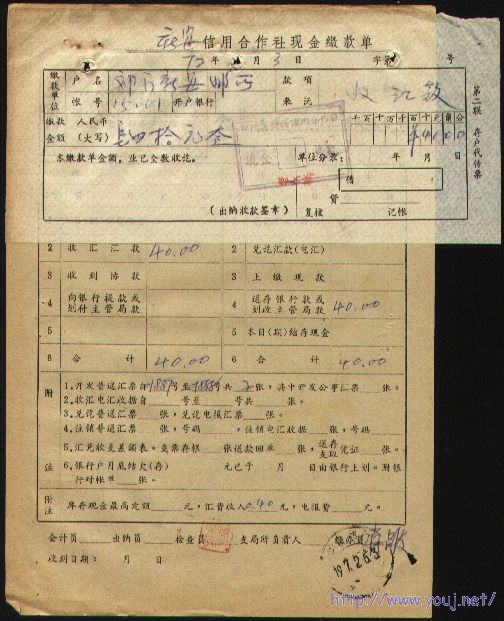 信用合作社现金缴款单
72年 月3日 字第 号
缴款单位
户名
款项来源 收汇款
帐号 开户银行
缴款金额 人民币(大写) 肆拾元
千百十万千百十元角分
¥4000
本缴款单金额,业已全数收讫。
单位分票: 年 月 日
现金
借
贷
(出纳收款签章) 复核 记帐
第二联 存户代传票
2 收汇汇款 40.00 2 兑讫汇款(电汇)
3 收到协款 3 上缴现款
4 向银行提款或划付主管局款 4 送存银行款或划收主管局款 40.00
5 5 本日(期)结存现金
6 合计 40.00 6 合计 40.00
附注
1.开发普通汇票自 号至 号共2张,其中开发公事汇票 张。
2.收汇电汇收据自 号至 号共 张。
3.兑讫普通汇票 张,兑讫电报汇票 张。
4.注销普通汇票 张,号码 ,注销电汇收据 张,号码
5.汇兑收支差额表。支票存根 张送款回单 张,送存支取凭证 张。
6.银行户月底结欠(存) 元已于 月 日由银行上划。附银行对帐单 张。
附注 库存现金最高定额 元,汇费收入0.40元,电报费 元。
会计员 出纳员 检查员 支局所负责人
收到日期: 月 日
http://www.youj.net/